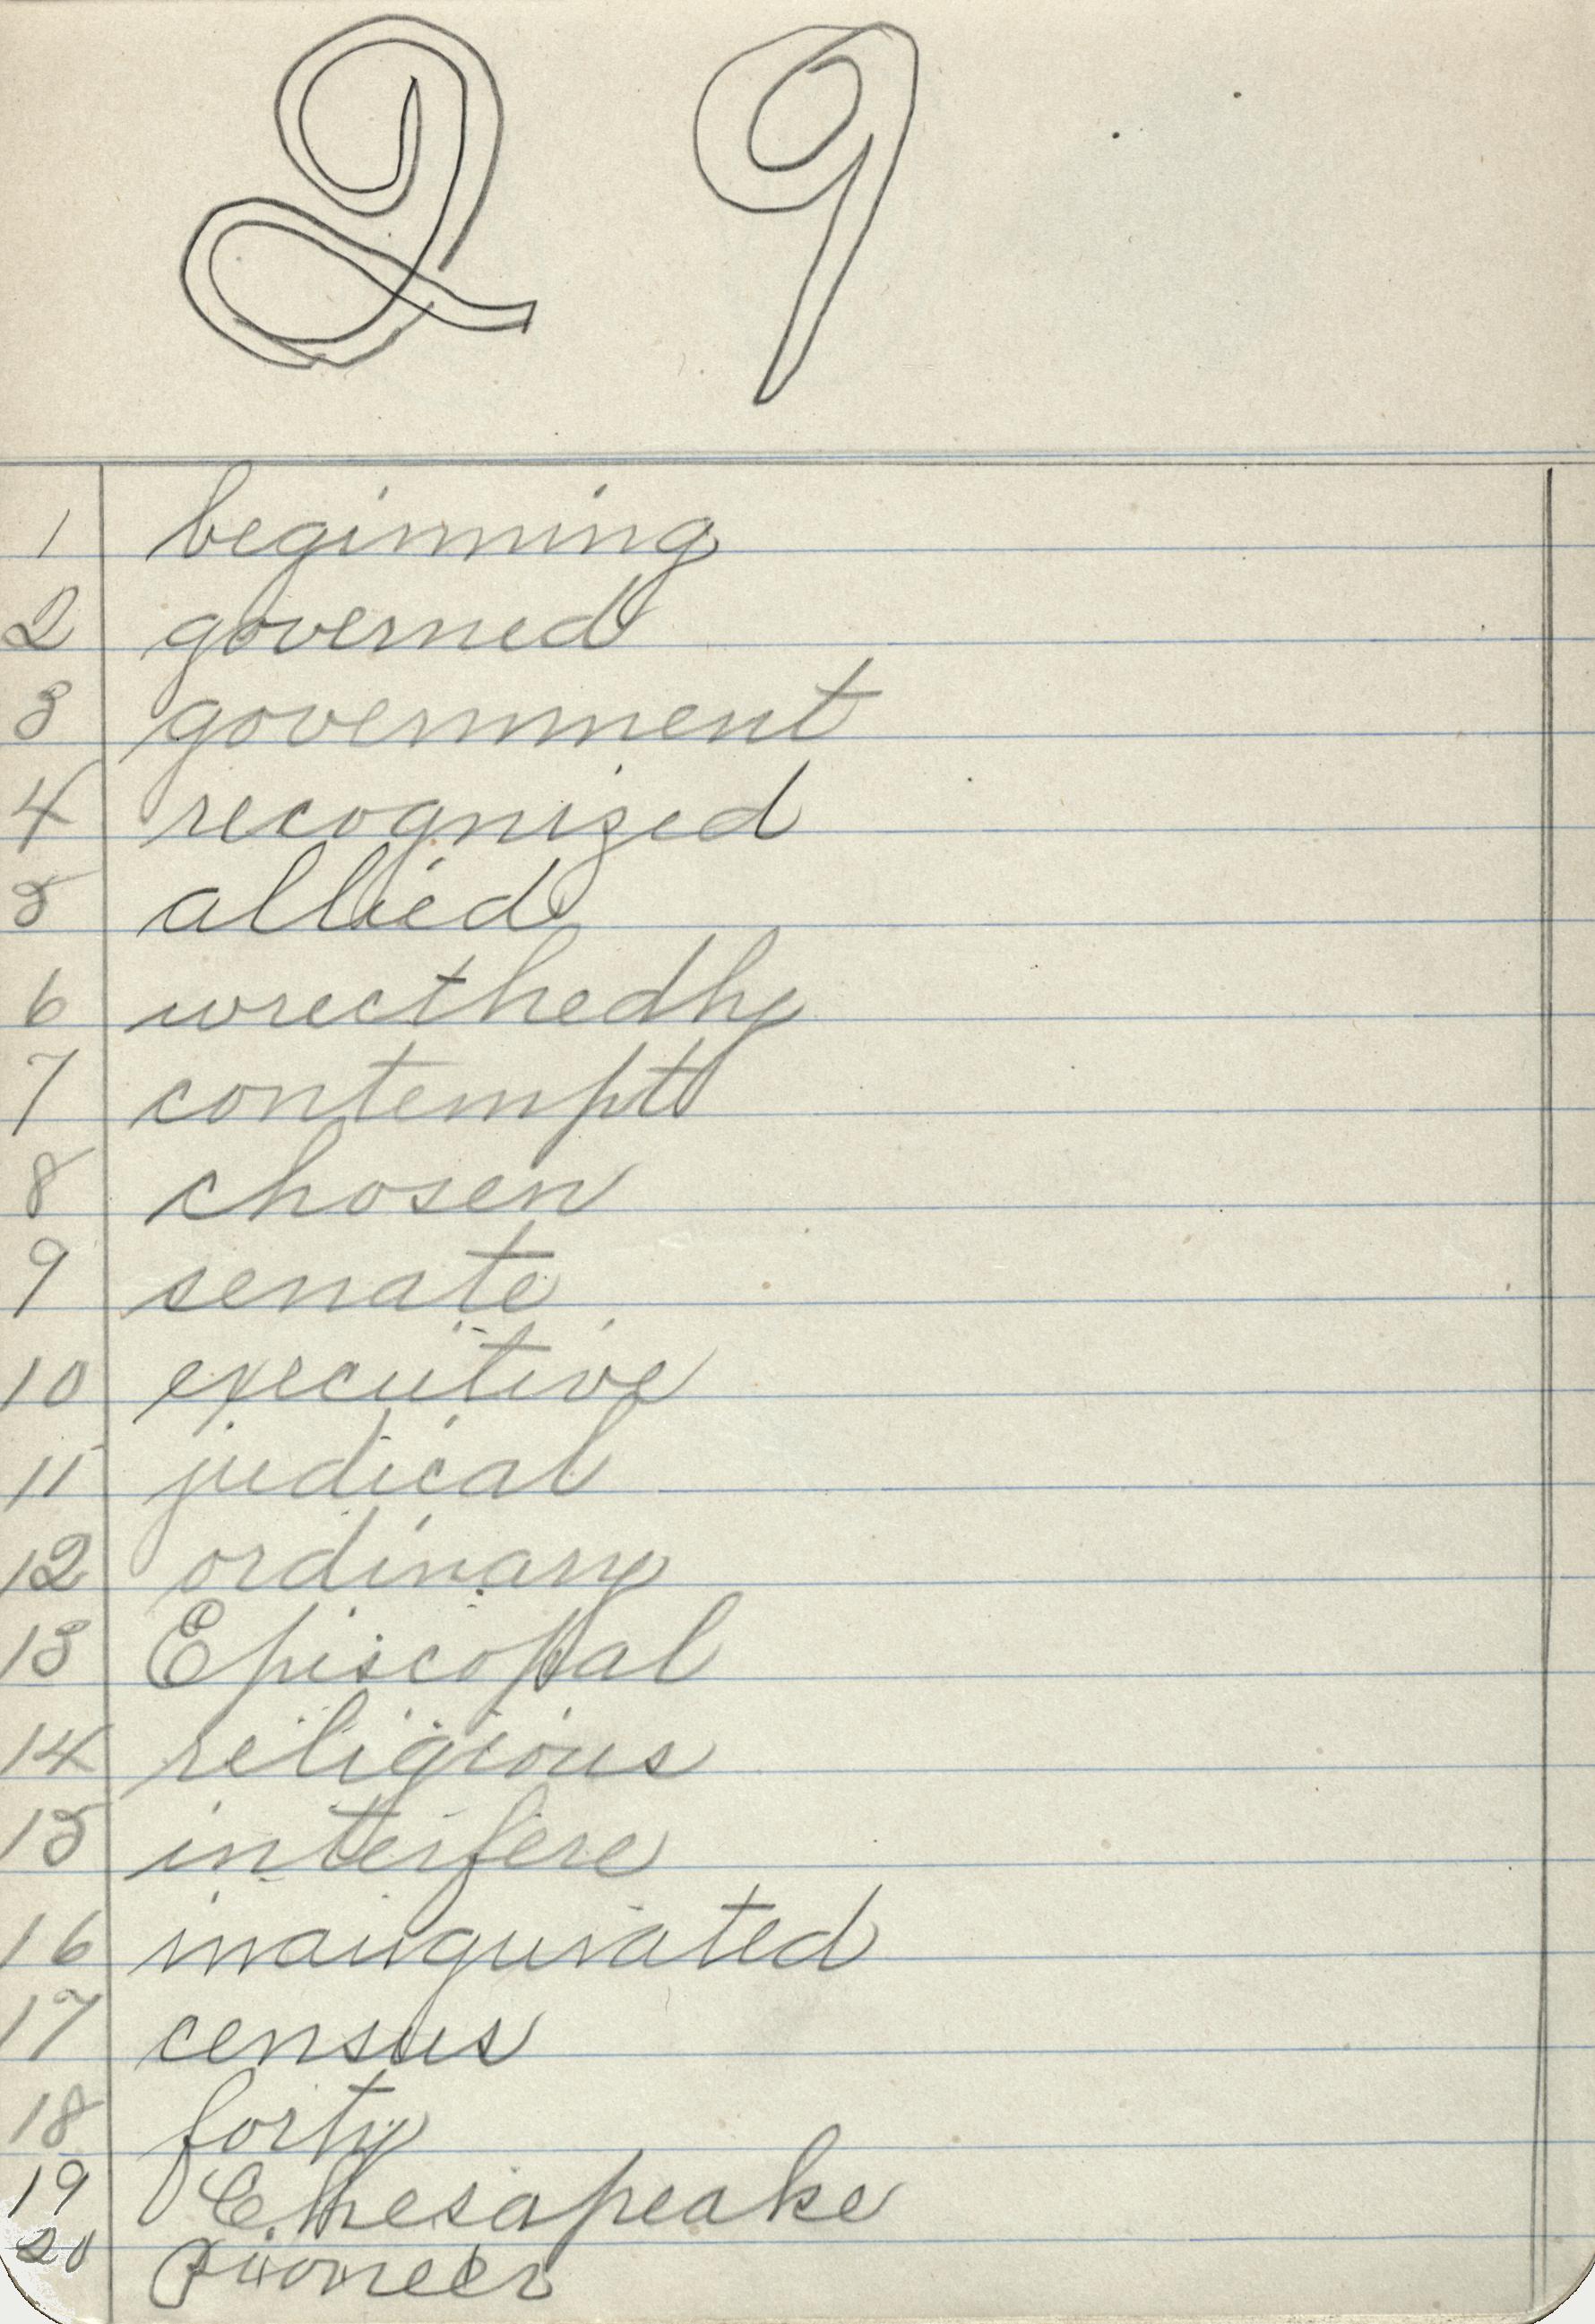 29
1 beginning
2 governed
3 government
4 recognized
5 allied
6 wrecthedly
7 contempt
8 chosen
9 senate
10 executive
11 judical
12 ordinary
13 Episcopal
14 religious
15 interfere
16 inaugurated
17 census
18 forty
19 Chesapeake
20 pioneer